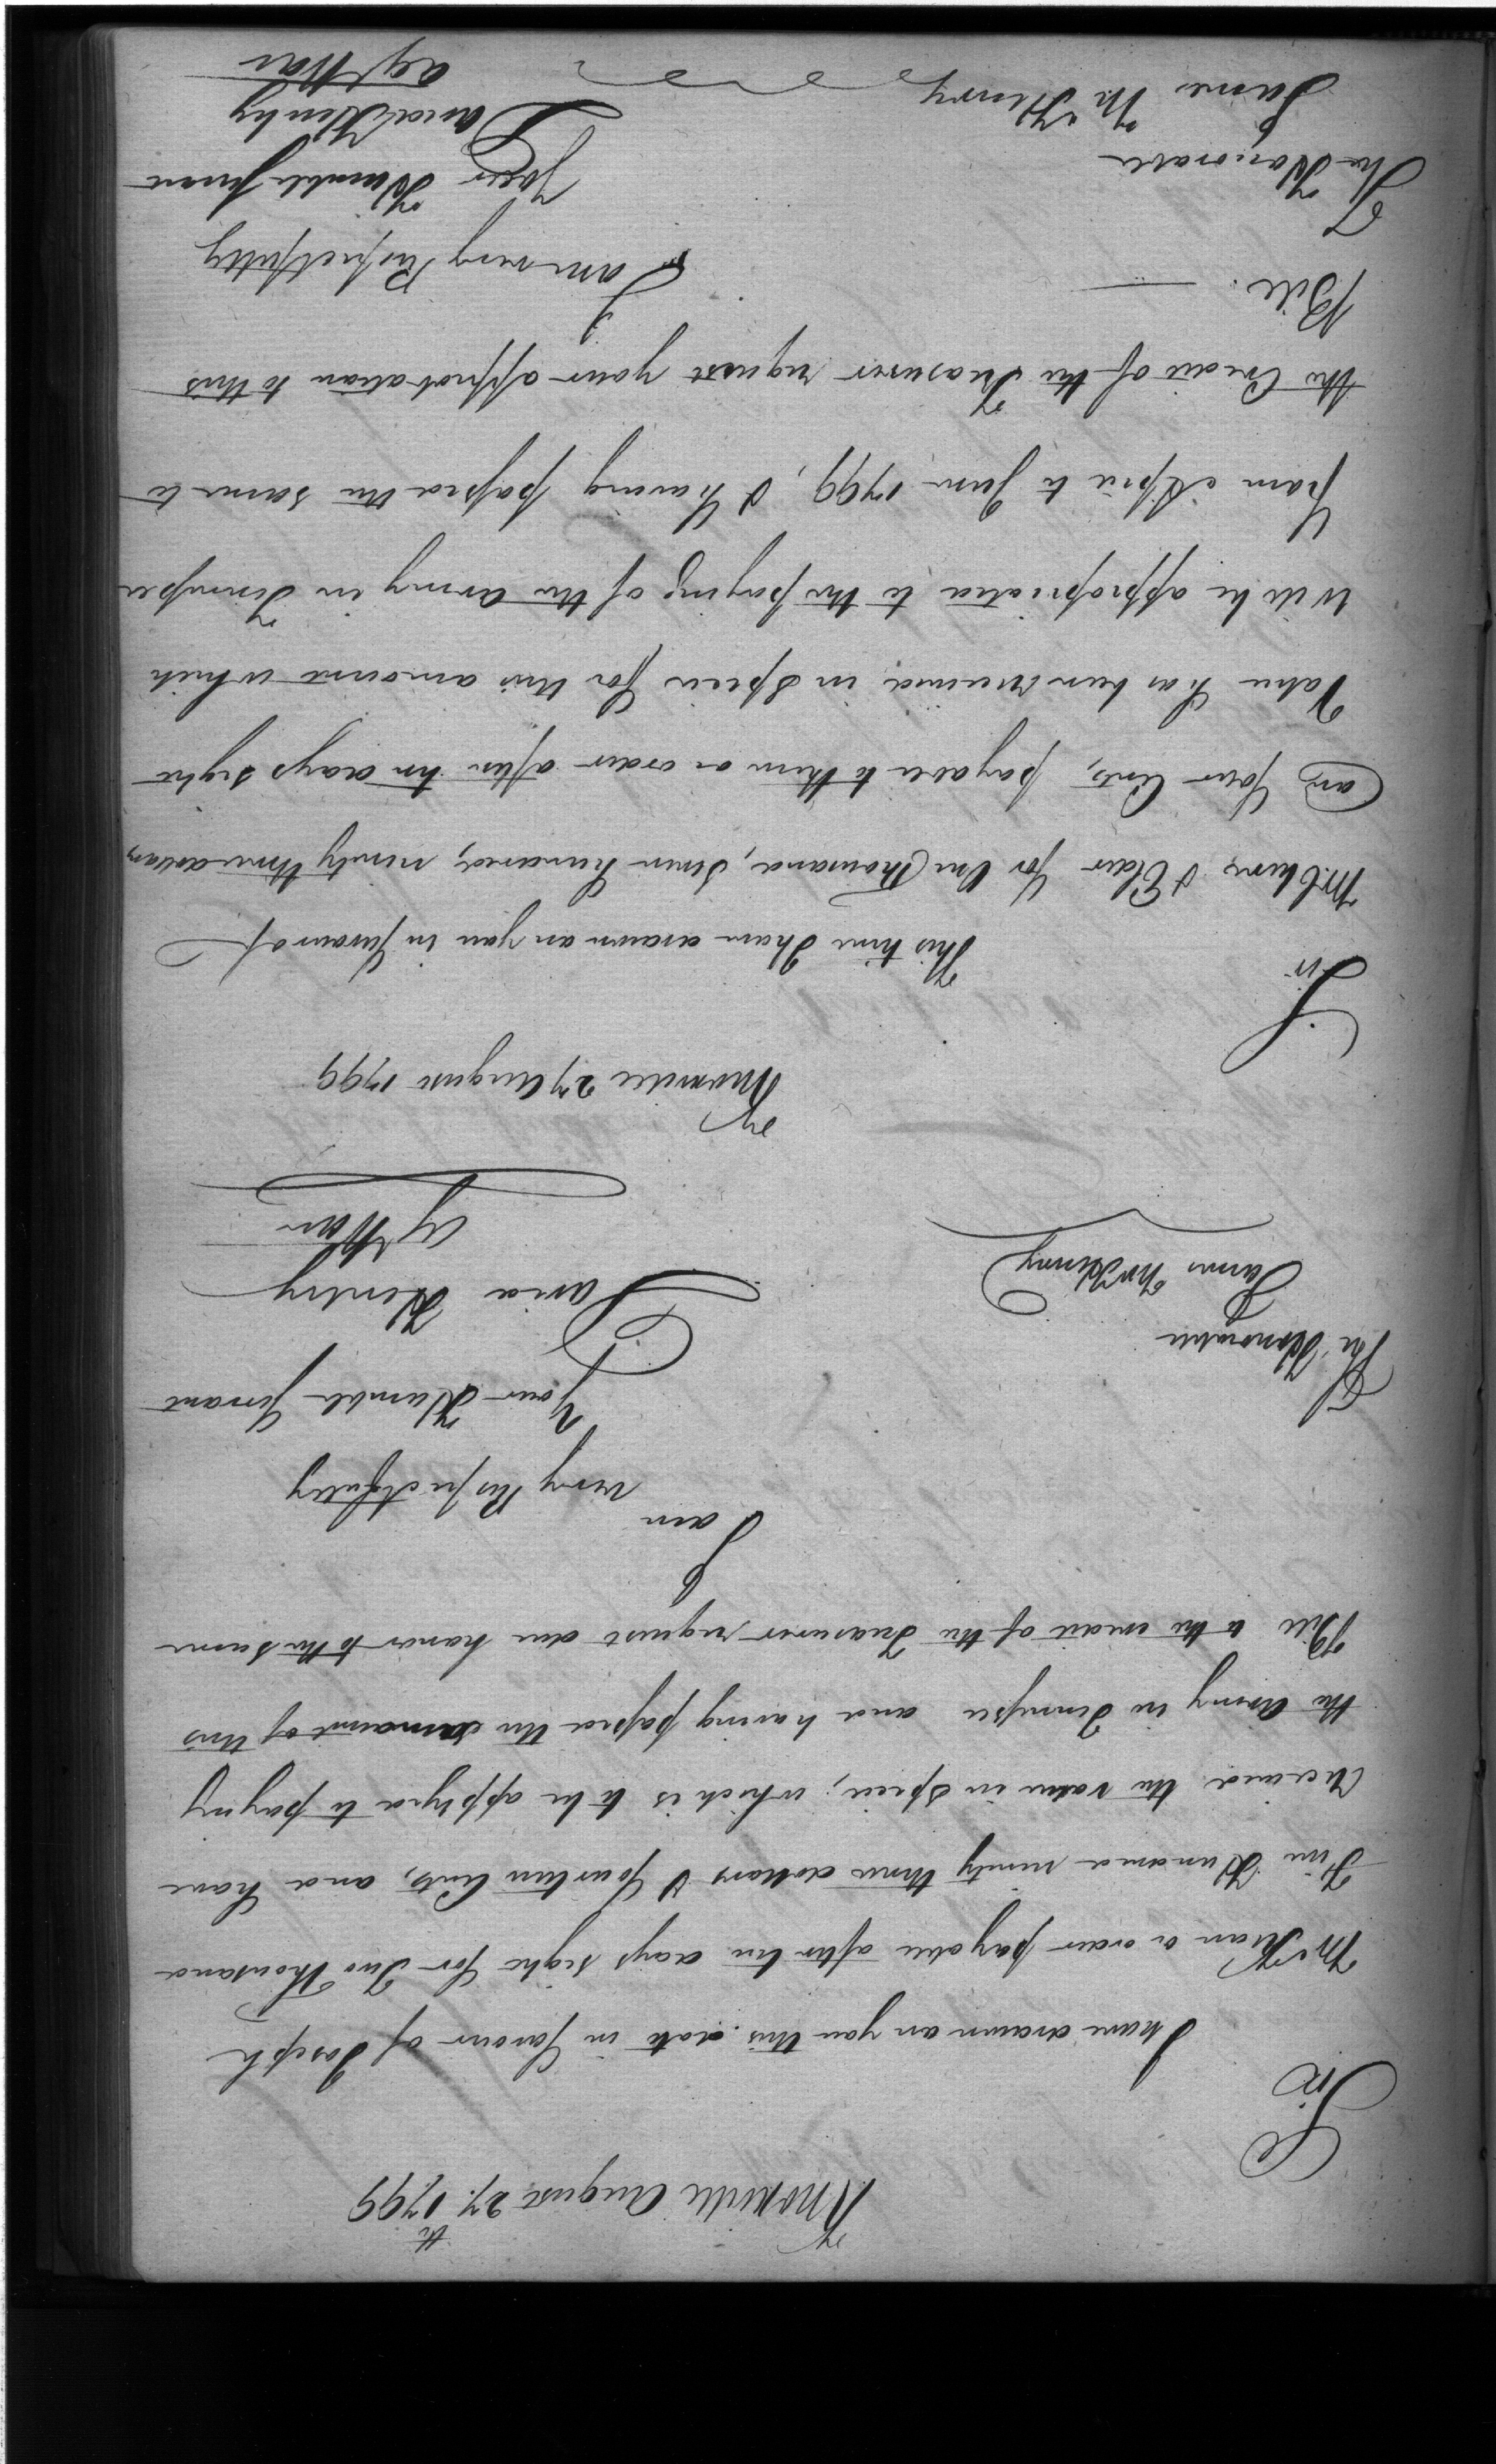 Knoxville August 27th 1799
Sir
I have drawn on you this date in favour of Joseph
McKean or order payable after ten days sight for Two Thousand
Five Hundred ninety three dollars & fourteen Cents, and have
received the value in Specie, which is to be applyed to paying
the Army in Tennessee and having passed the amount of this
Bill to the credit of the Treasurer request due honor to the same
I am
very Respectfully
Your Humble Servant
David Henley
Ag War
The Honorable
James McHenry
Knoxville 27 August 1799
Sir
This time I have drawn on you in favour of
McClung & Elder for One Thousand, Seven Hundred, ninety three dollars
and four Cents, payable to them or order after ten days sight
Value has been received in Specie for this amount which
will be appropriated to the paying of the Army in Tennessee
from April to June 1799, & having passed the same to
the Credit of the Treasurer request your approbation to this
Bill.
I am very Respectfully
Your Humble Servant
David Henley
Ag War
The Honorable
James McHenry